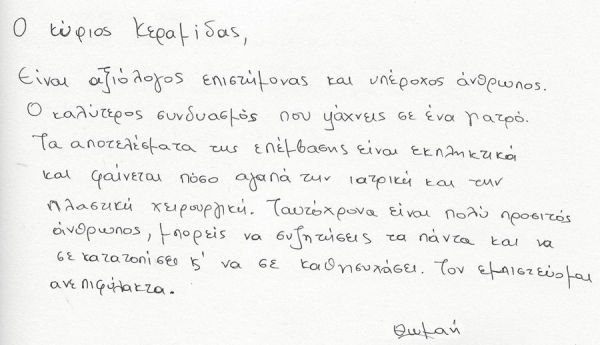 Ο κύριος Κεραμίδας,
Είναι αξιόλογος επιστήμονας και υπέροχος άνθρωπος.
Ο καλύτερος συνδυασμός που ψάχνεις σε ένα γιατρό.
Τα αποτελέσματα της επέμβασης είναι εκπληκτικά
και φαίνεται πόσο αγαπά την ιατρική και την
πλαστική χειρουργική. Ταυτόχρονα είναι πολύ προσιτός
άνθρωπος, μπορείς να συζητήσεις τα πάντα και να
σε κατατοπίσει κ' να σε καθησυχάσει. Τον εμπιστεύομαι
ανεπιφύλακτα.
Θωμαή